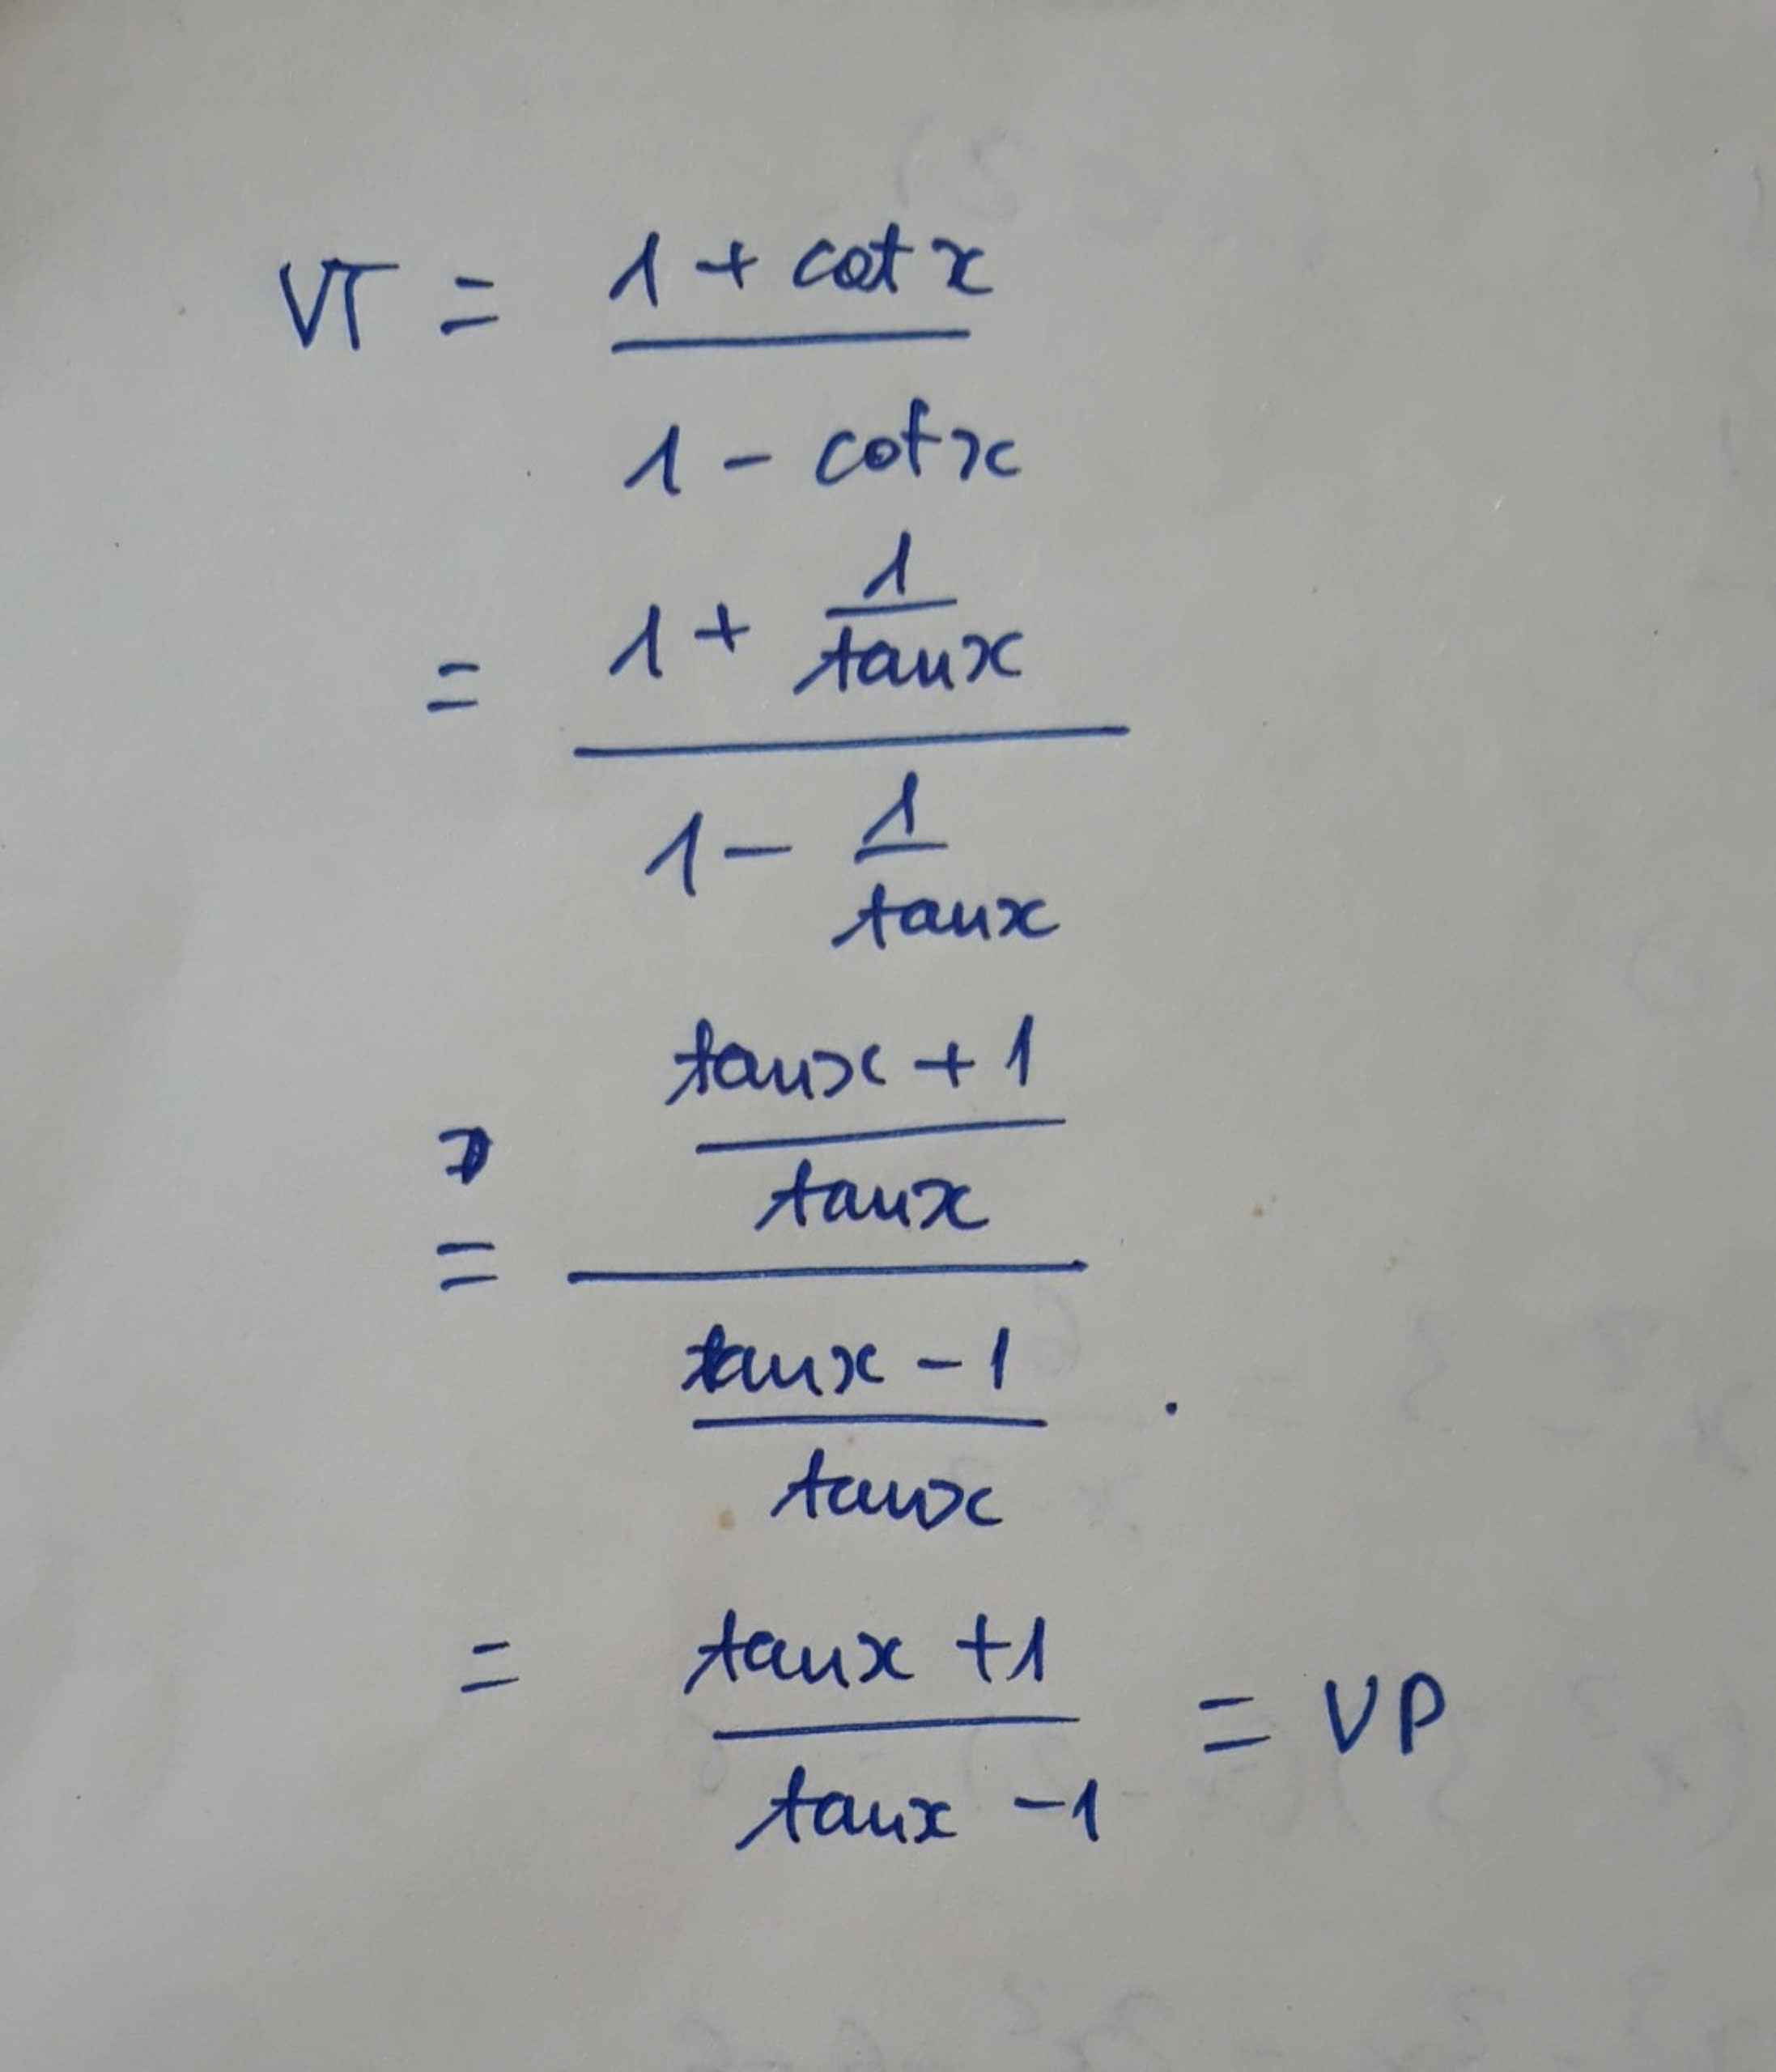 VT = 1 + cot x
1 - cot x
= 1 + 1
tan x
1 - 1
tan x
tan x + 1
tan x
=
tan x - 1
tan x
= tan x + 1
tan x - 1 = VP